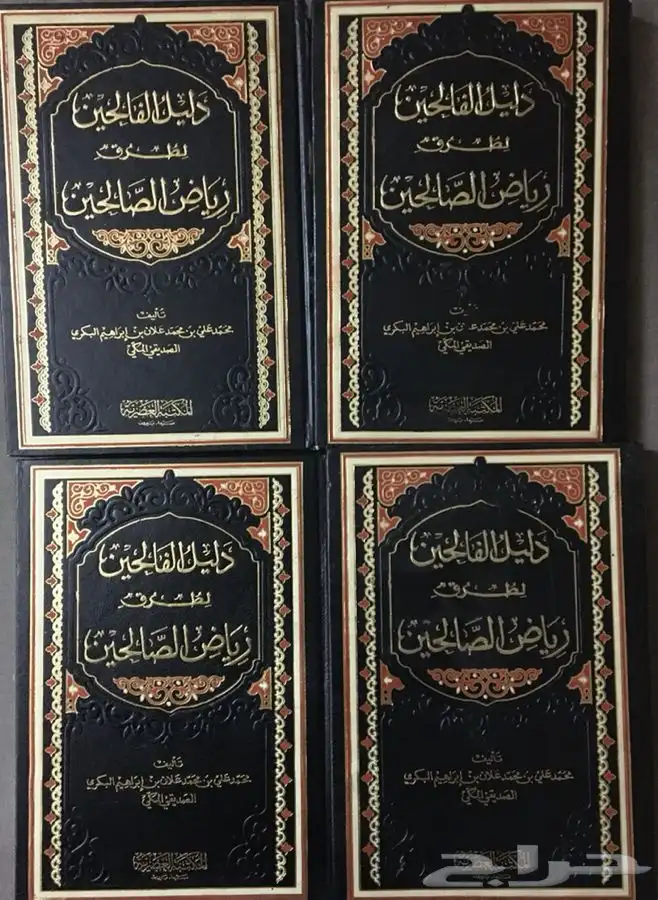 دليل الفالحين
لطرق
رياض الصالحين
تأليف
محمد علي بن محمد علان بن إبراهيم البكري
الصديقي المكي
المكتبة العصرية
صيدا - بيروت
دليل الفالحين
لطرق
رياض الصالحين
محمد علي بن محمد علان بن إبراهيم البكري
الصديقي المكي
المكتبة العصرية
صيدا - بيروت
دليل الفالحين
لطرق
رياض الصالحين
تأليف
محمد علي بن محمد علان بن إبراهيم البكري
الصديقي المكي
المكتبة العصرية
صيدا - بيروت
دليل الفالحين
لطرق
رياض الصالحين
تأليف
محمد علي بن محمد علان بن إبراهيم البكري
الصديقي المكي
المكتبة العصرية
حراج